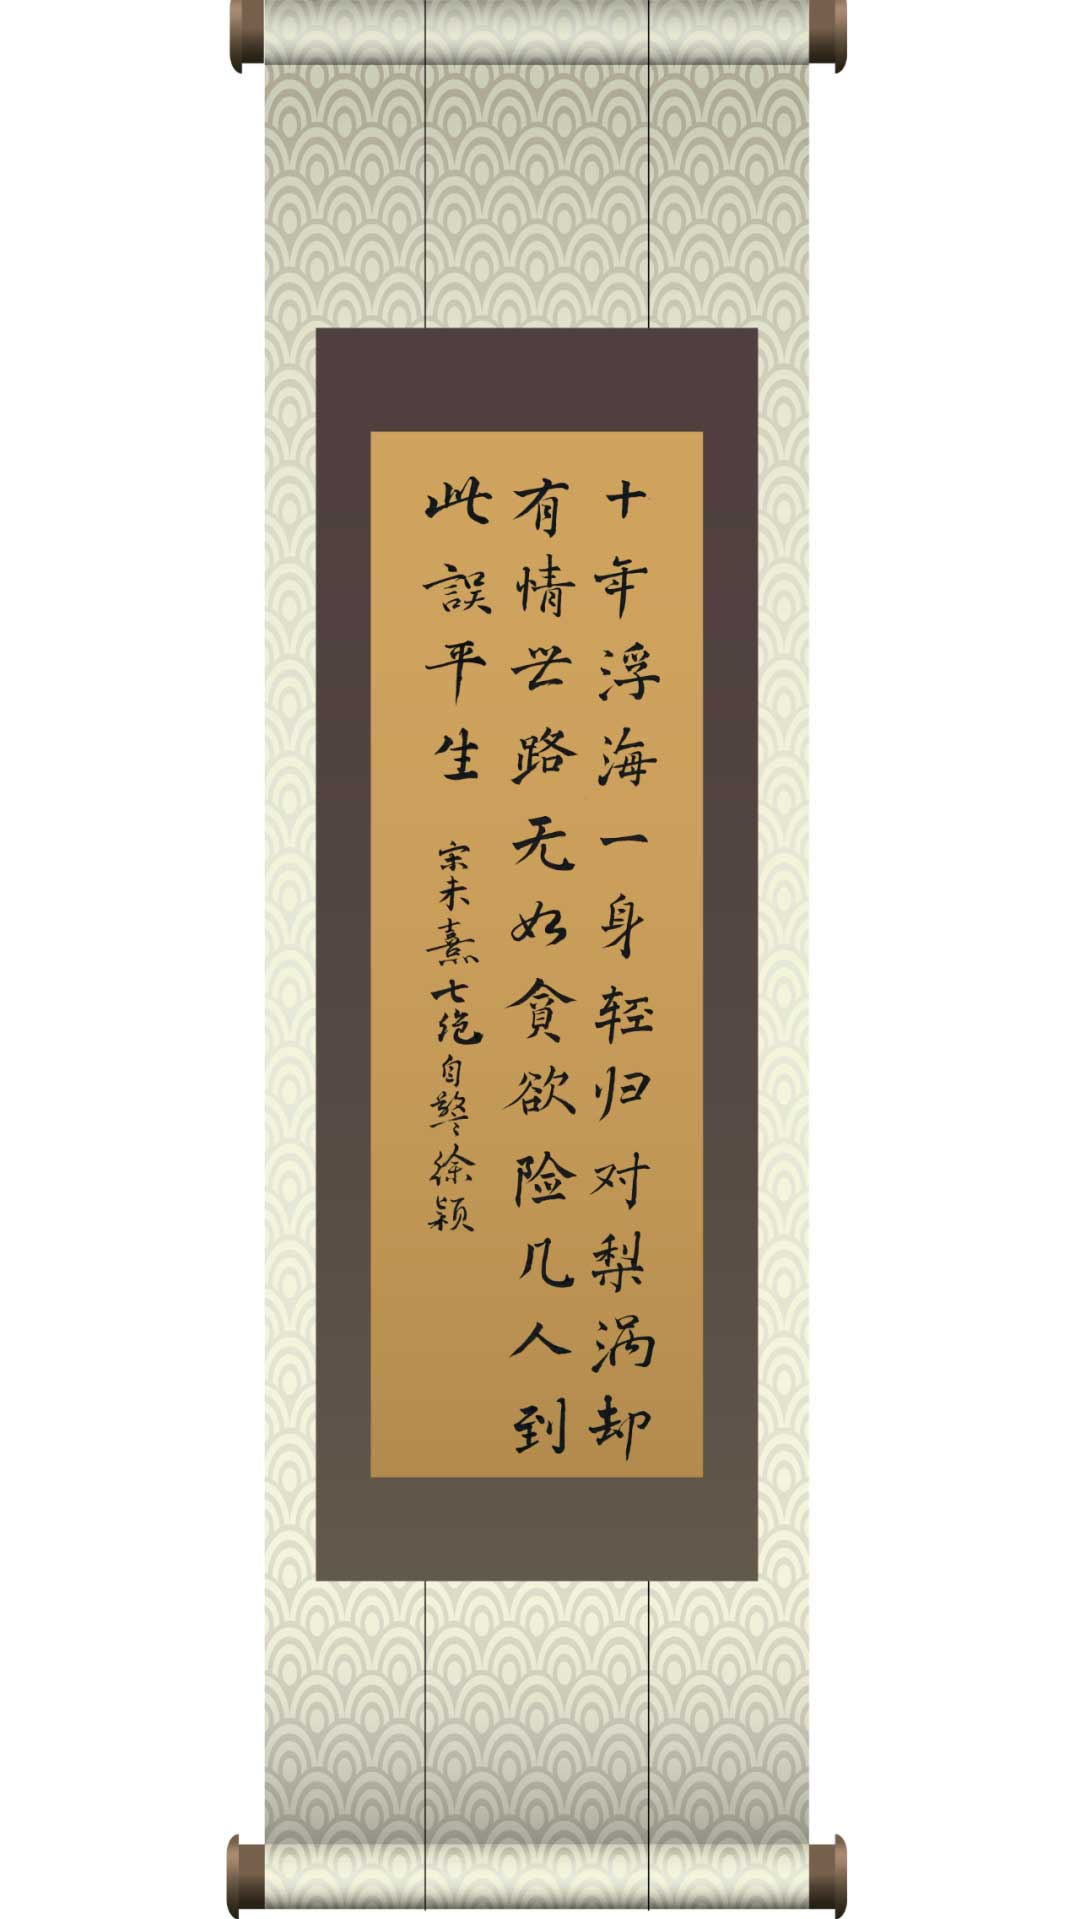 十年浮海一身轻归对梨涡却
有情世路无如貪欲险几人到
此誤平生
宋朱熹七绝自警徐颖